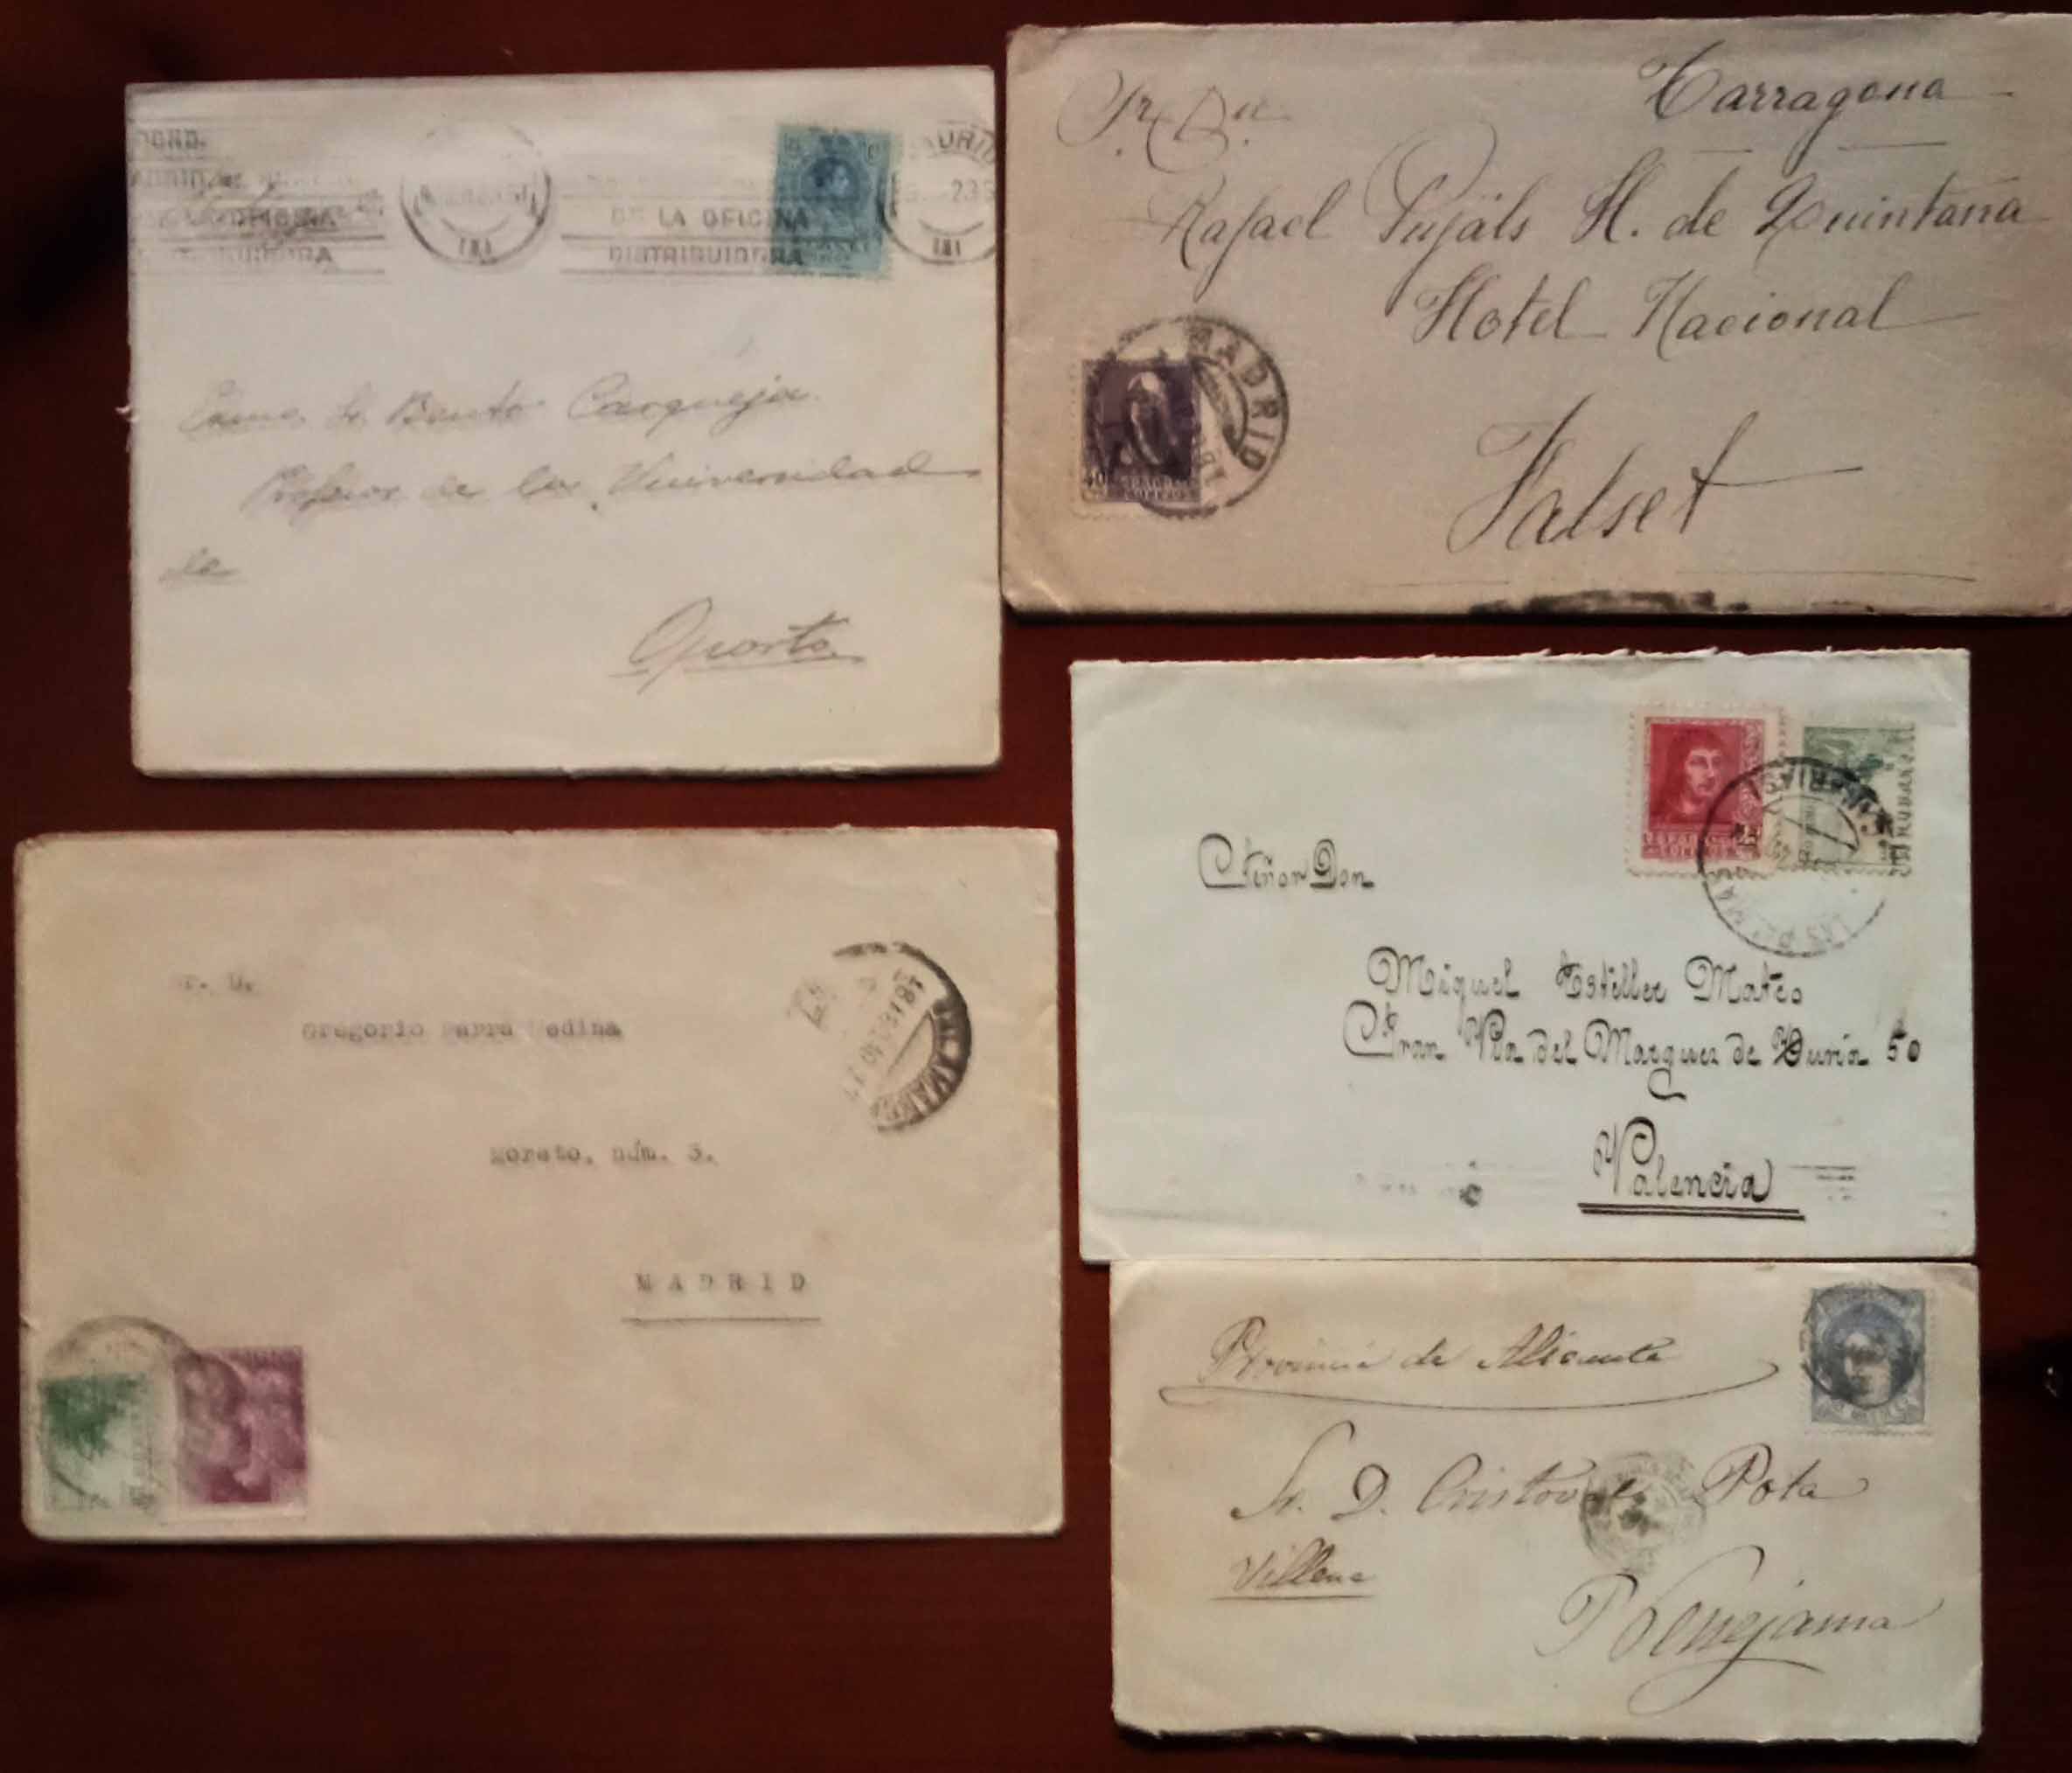 DE LA OFICINA
DISTRIBUIDORA
Exmo. Sr. Bento Carqueja
Profesor de la Universidad
de
Oporto
Tarragona
Sr. Dn.
Rafael Pujals H. de Quintana
Hotel Nacional
Falset
MADRID
40
CORREOS
Señor Don
Miguel Estiller Mateo
Gran Via del Marques de Turia 50
Valencia
CORREOS
LAS PALMAS
CANARIAS
Gregorio Parra Medina
Moreto, núm. 3.
MADRID
SALAMANCA
Provincia de Alicante
Sr. D. Cristoval Pota
Villena
Benejama